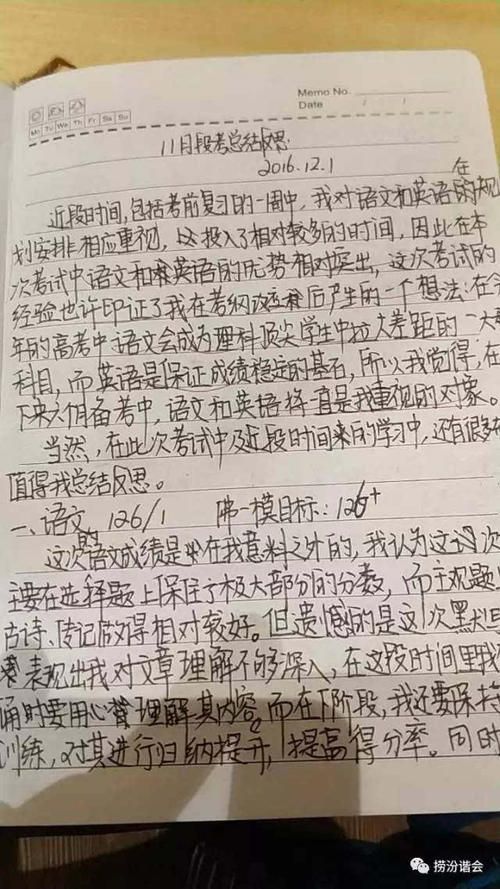 Memo No.
Mo Tu We Th Fr Sa Su
Date / /
11月段考总结反思
2016.12.1
近段时间,包括考前复习的一周中,我对语文和英语的规
在
划安排相应重视,投入了相对较多的时间,因此在本
次考试中语文和英语的优势相对突出,这次考试的
经验也许印证了我在考纲改后产生的一个想法:在
年的高考中语文会成为理科顶尖学生中拉大差距的一大
科目,而英语是保证成绩稳定的基石,所以我觉得,在
下来六个月备考中,语文和英语将一直是我重视的对象。
当然,在此次考试中及近段时间来的学习中,还有很多
值得我总结反思。
一、语文 126/1 佛一模目标:126+
这次的语文成绩是在我意料之外的,我认为这次
主要在选择题上保住了极大部分的分数,而主观题
古诗、传记做得相对较好。但遗憾的是这次默
表现出我对文章理解不够深入,在这段时间里我
诵时要用心思理解其内容。而在下阶段,我还要保持
训练,对其进行归纳提升,提高得分率。同时
捞汾谐会